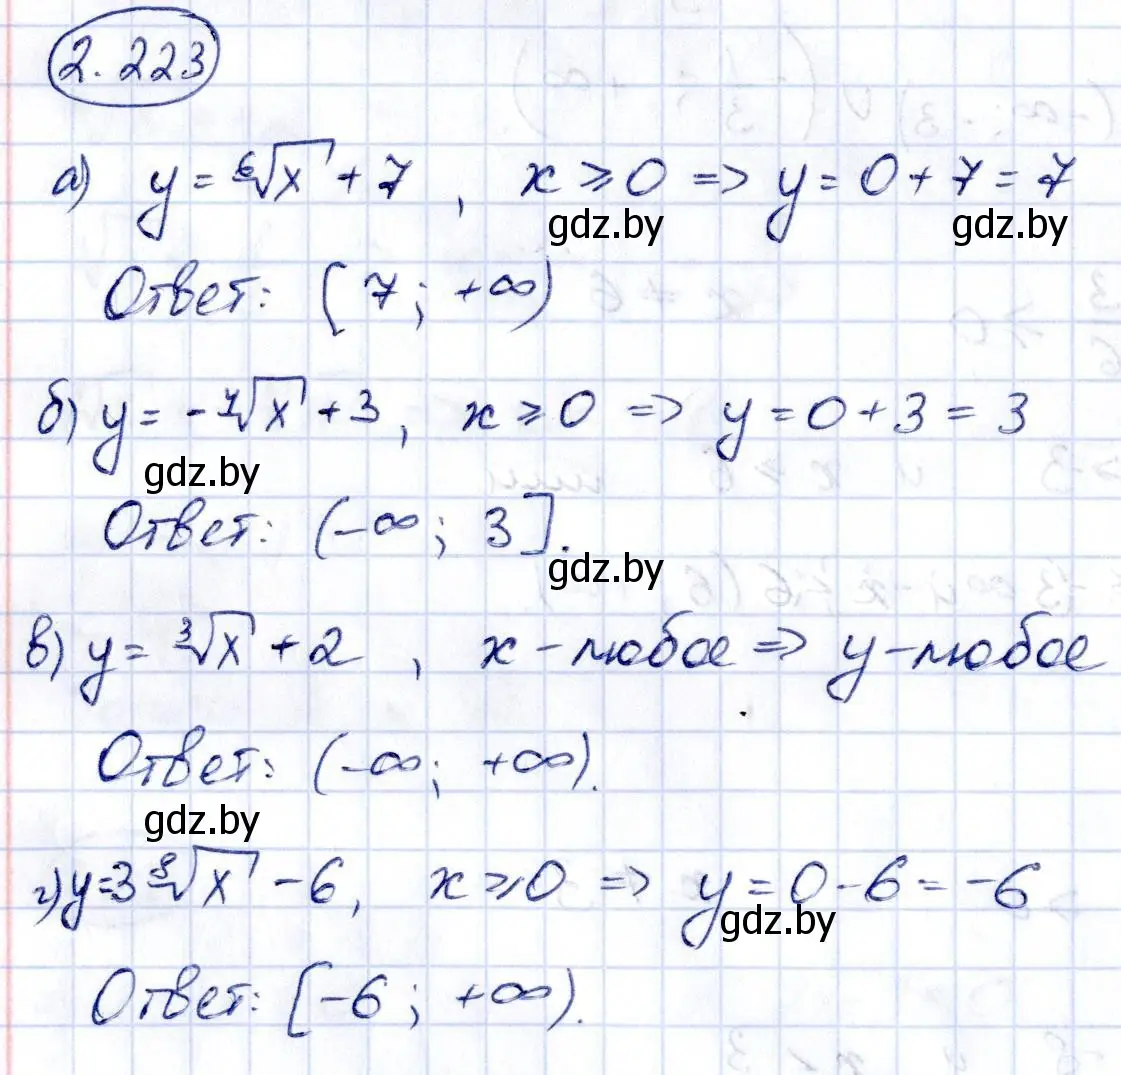 2.223
а) y = ⁶√x + 7 , x ≥ 0 => y = 0 + 7 = 7
gdz.by gdz.by
Ответ: [7; +∞)
б) y = - ⁴√x + 3, x ≥ 0 => y = 0 + 3 = 3
gdz.by
Ответ: (-∞; 3].
gdz.by
в) y = ³√x + 2 , x - любое => y - любое
Ответ: (-∞; +∞).
gdz.by
г) y = 3 ⁸√x - 6, x ≥ 0 => y = 0 - 6 = -6
gdz.by
Ответ: [-6; +∞).